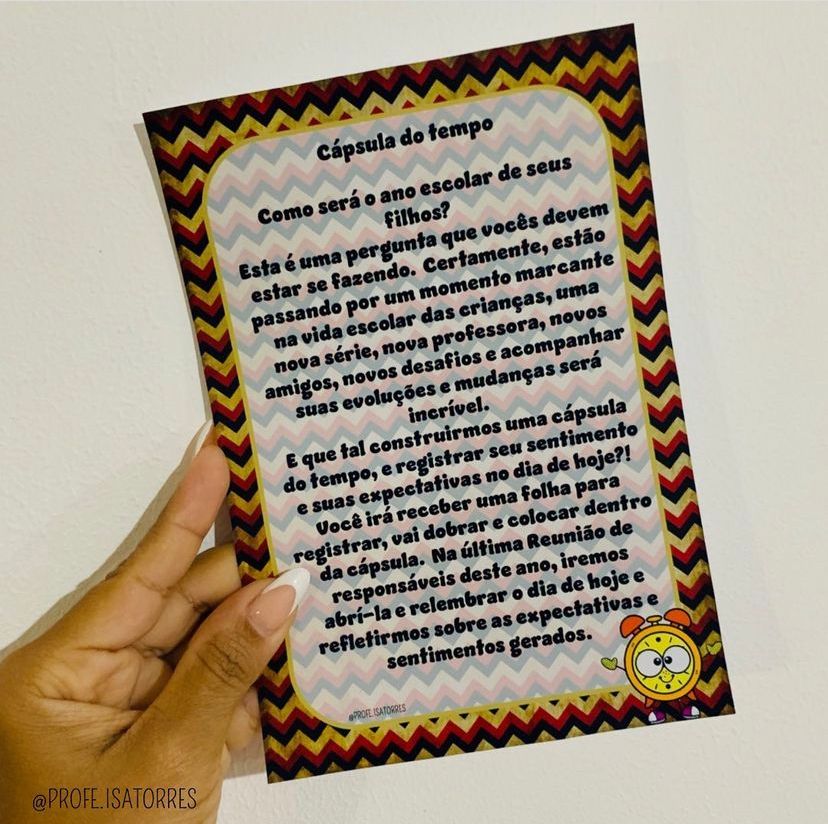 Cápsula do tempo
Como será o ano escolar de seus
filhos?
Esta é uma pergunta que vocês devem
estar se fazendo. Certamente, estão
passando por um momento marcante
na vida escolar das crianças, uma
nova série, nova professora, novos
amigos, novos desafios e acompanhar
suas evoluções e mudanças será
incrível.
E que tal construirmos uma cápsula
do tempo, e registrar seu sentimento
e suas expectativas no dia de hoje?!
Você irá receber uma folha para
registrar, vai dobrar e colocar dentro
da cápsula. Na última Reunião de
responsáveis deste ano, iremos
abrí-la e relembrar o dia de hoje e
refletirmos sobre as expectativas e
sentimentos gerados.
@PROFE.ISATORRES
@PROFE.ISATORRES